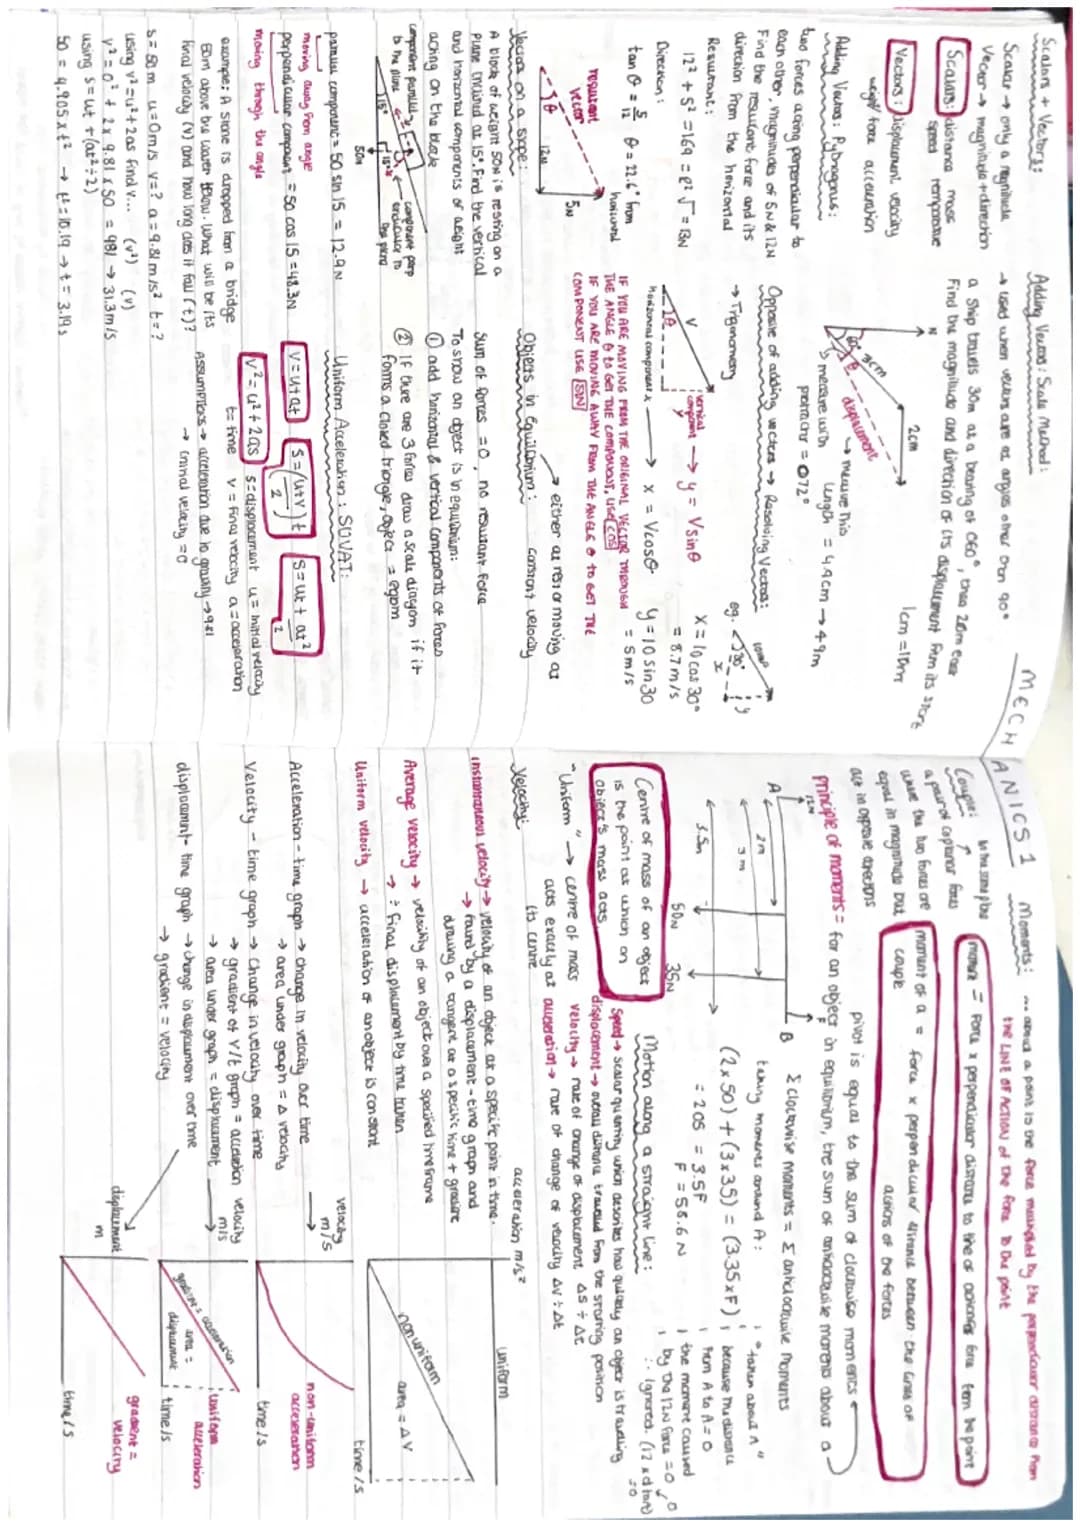 MECHANICS 1
Scalars + Vectors:
Scalar → only a magnitude
Vector → magnitude + direction
Scalars: distance mass
speed temperature
Vectors: displacement velocity
weight/force acceleration
Adding Vectors: Pythagoras:
two forces acting perpendicular to
each other, magnitudes of 5N & 12N
Find the resultant force and its
direction from the horizontal
Resultant:
12² + 5² = 169 = R² √ = 13N
Direction:
tan θ = 5/12 θ = 22.6° from
horizontal
resultant
vector
θ
12N
5N
Vectors on a slope:
A block of weight 50N is resting on a
plane inclined at 15°. Find the vertical
and horizontal components of weight
acting on the block
component parallel
to the plane
component perp
endicular to
the plane
15°
15°
50N
parallel component = 50 sin 15 = 12.9N
moving away from angle
perpendicular component = 50 cos 15 = 48.3N
moving through the angle
example: A stone is dropped from a bridge
50m above the water below. What will be its
final velocity (v) and how long does it fall (t)?
s = 50m u = 0m/s v = ? a = 9.81m/s² t = ?
using v² = u² + 2as find v... (v²) (v)
v² = 0² + 2 x 9.81 x 50 = 981 → 31.3m/s
using s = ut + (at² ÷ 2)
50 = 4.905 x t² → t² = 10.19 → t = 3.19s
Adding Vectors: Scale Method:
→ used when vectors are at angles other than 90°
a ship travels 30m at a bearing of 060°, then 20m east
Find the magnitude and direction of its displacement from its start
1cm = 10m
N
3cm
2cm
displacement
→ measure this
length = 4.9cm → 49m
↳ measure with
protractor = 072°
Opposite of adding vectors → Resolving Vectors:
→ Trigonometry
V
θ
vertical
component y → y = V sin θ
horizontal component x → x = V cos θ
eg.
10m/s
30°
x
y
x = 10 cos 30°
= 8.7m/s
y = 10 sin 30
= 5m/s
IF YOU ARE MOVING FROM THE ORIGINAL VECTOR THROUGH
THE ANGLE θ TO GET THE COMPONENT, USE COS
IF YOU ARE MOVING AWAY FROM THE ANGLE θ TO GET THE
COMPONENT USE SIN
Objects in Equilibrium:
→ either at rest or moving at
constant velocity
Sum of forces = 0, no resultant force
To show an object is in equilibrium:
① add horizontal & vertical components of forces
② If there are 3 forces draw a scale diagram if it
forms a closed triangle, object = eqbm
Uniform Acceleration: SUVAT:
v = u + at
s = (u+v/2) t
s = ut + at²/2
v² = u² + 2as
s = displacement u = initial velocity
t = time v = final velocity a = acceleration
Assumptions → acceleration due to gravity → 9.81
→ initial velocity = 0
Moments:
the force multiplied by the perpendicular distance from
the LINE OF ACTION of the force to the point
moment = Force x perpendicular distance to line of action of force from the point
in the same plane
Couple:
a pair of coplanar forces
where the two forces are
equal in magnitude but
act in opposite directions
moment of a = force x perpendicular distance between the lines of
couple actions of the forces
principle of moments = for an object in equilibrium, the sum of anticlockwise moments about a
pivot is equal to the sum of clockwise moments
A
B
12N
F
2m
3m
3.5m
50N
35N
Σ clockwise moments = Σ anticlockwise moments
taking moments around A:
(2 x 50) + (3 x 35) = (3.35 x F)
= 205 = 3.5F
F = 58.6N
" taken about A "
because the distance
from A to A = 0
the moment caused
by the 12N force = 0
∴ ignored.
Centre of mass of an object
is the point at which an
object's mass acts.
"Uniform" → centre of mass
acts exactly at
its centre
Motion along a straight line:
Speed → scalar quantity which describes how quickly an object is travelling
displacement → overall distance travelled from the starting position
velocity → rate of change of displacement Δs ÷ Δt
acceleration → rate of change of velocity Δv ÷ Δt
Velocity:
instantaneous velocity → velocity of an object at a specific point in time.
→ found by a displacement-time graph and
drawing a tangent at a specific time + gradient
Average velocity → velocity of an object over a specified timeframe
→ ÷ final displacement by time taken
Uniform velocity → acceleration of an object is constant
Acceleration-time graph → change in velocity over time
→ area under graph = Δ velocity
Velocity-time graph → change in velocity over time
→ gradient of v/t graph = acceleration
→ area under graph = displacement
displacement-time graph → change in displacement over time
→ gradient = velocity
acceleration m/s²
uniform
non uniform
area = ΔV
time/s
velocity
m/s
non-uniform
acceleration
time/s
velocity
m/s
gradient = acceleration
area =
displacement
uniform
acceleration
time/s
displacement
m
gradient =
velocity
time/s